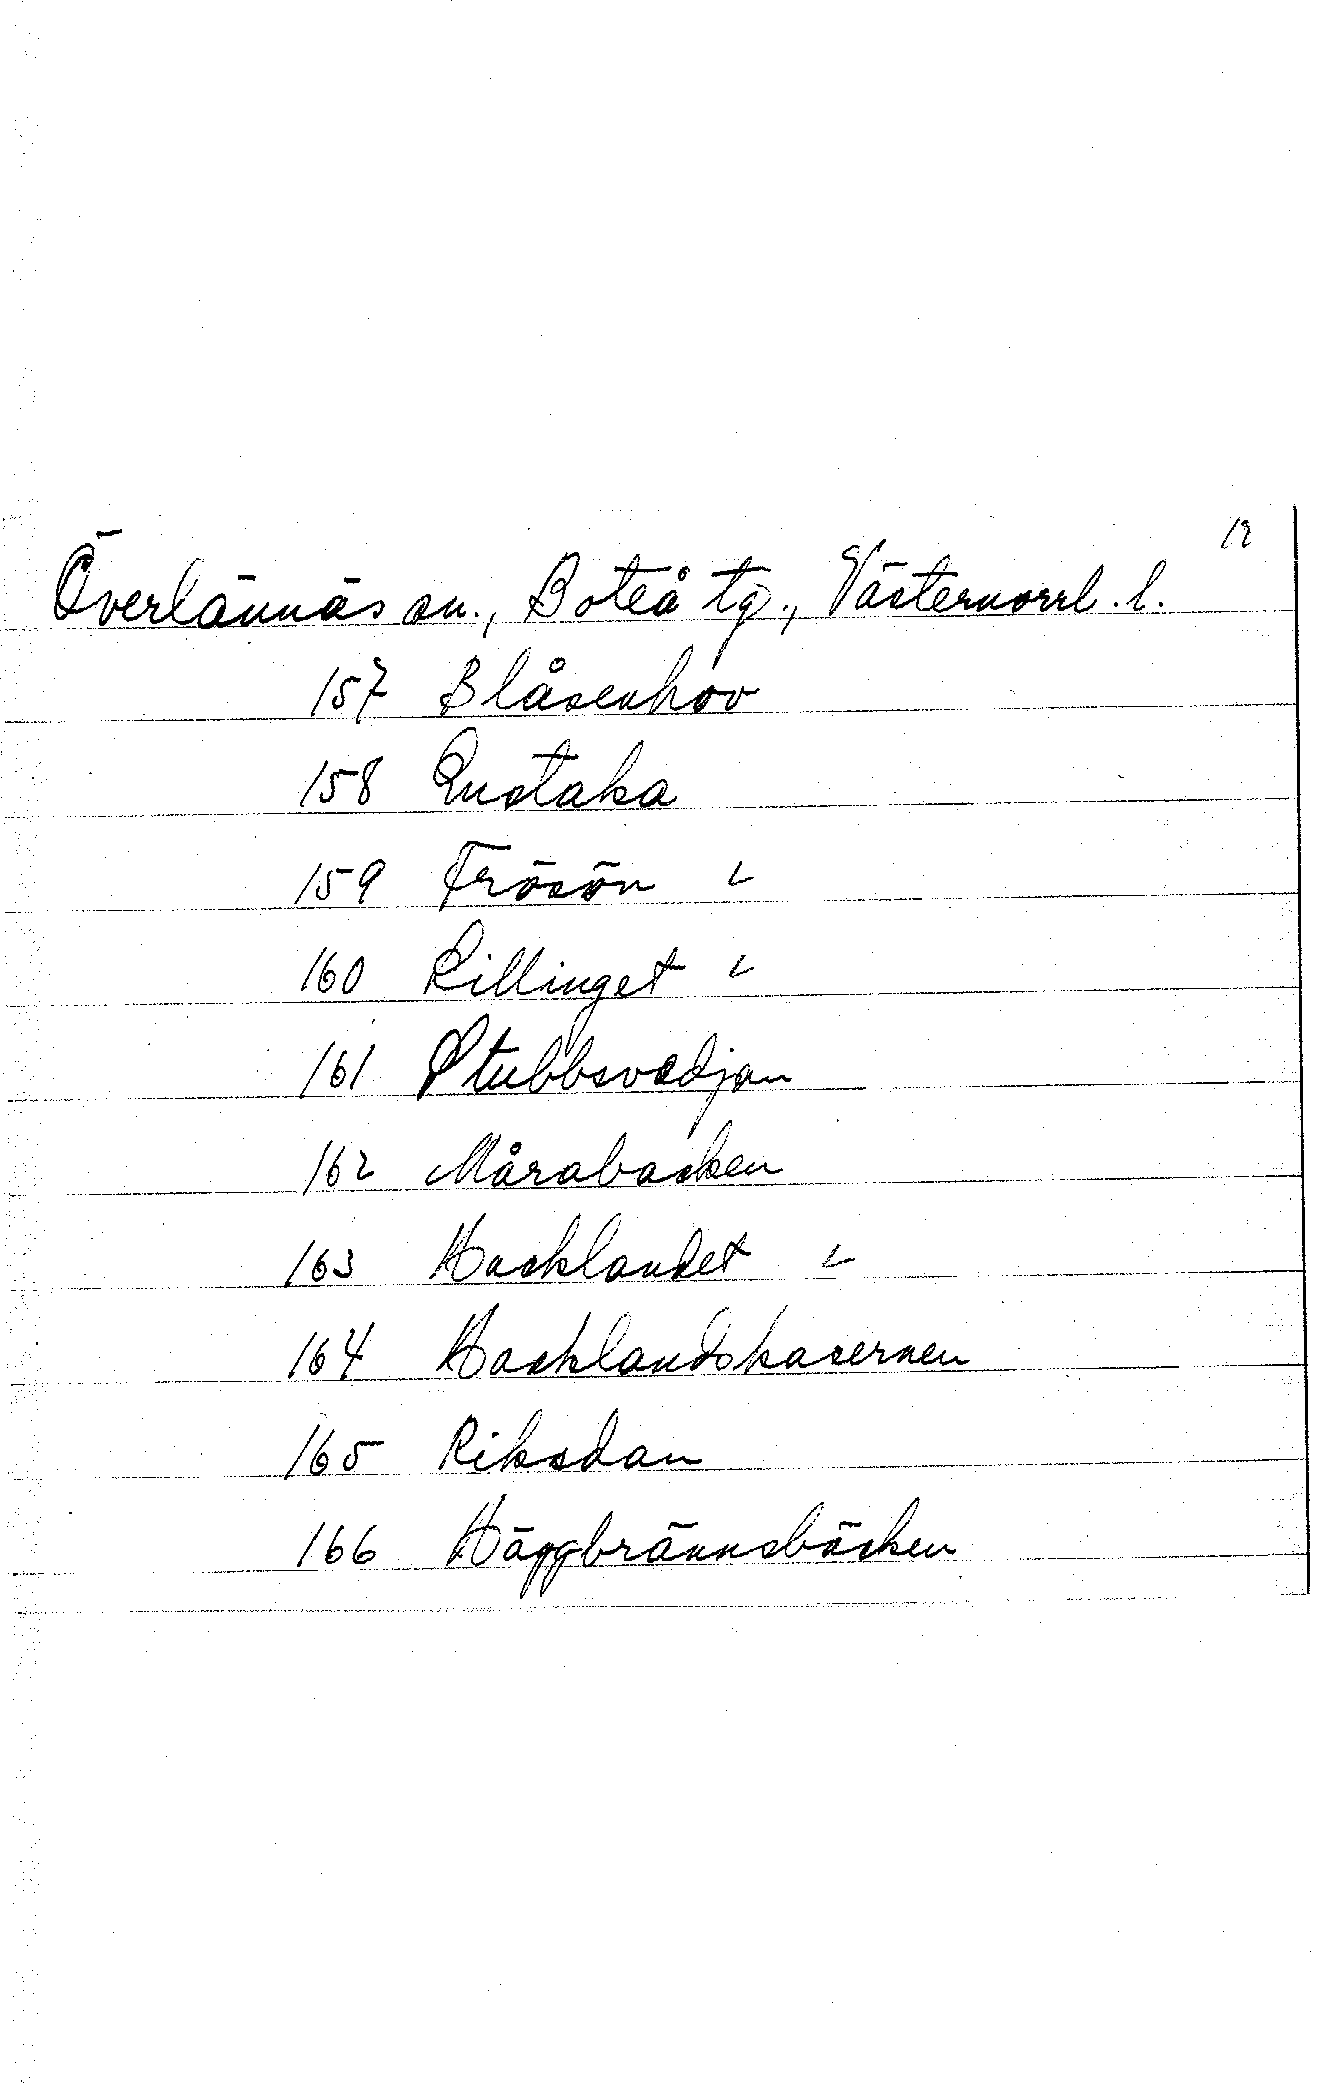 12
Överlännäs sn., Boteå tg., Västernorrl. l.
157 Blåsenhov
158 Enstaka
159 Frösön
160 Killinget
161 Stubbsvedjan
162 Mårabacken
163 Hacklandet
164 Hacklandskasernen
165 Riksdan
166 Häggbrännsbäcken